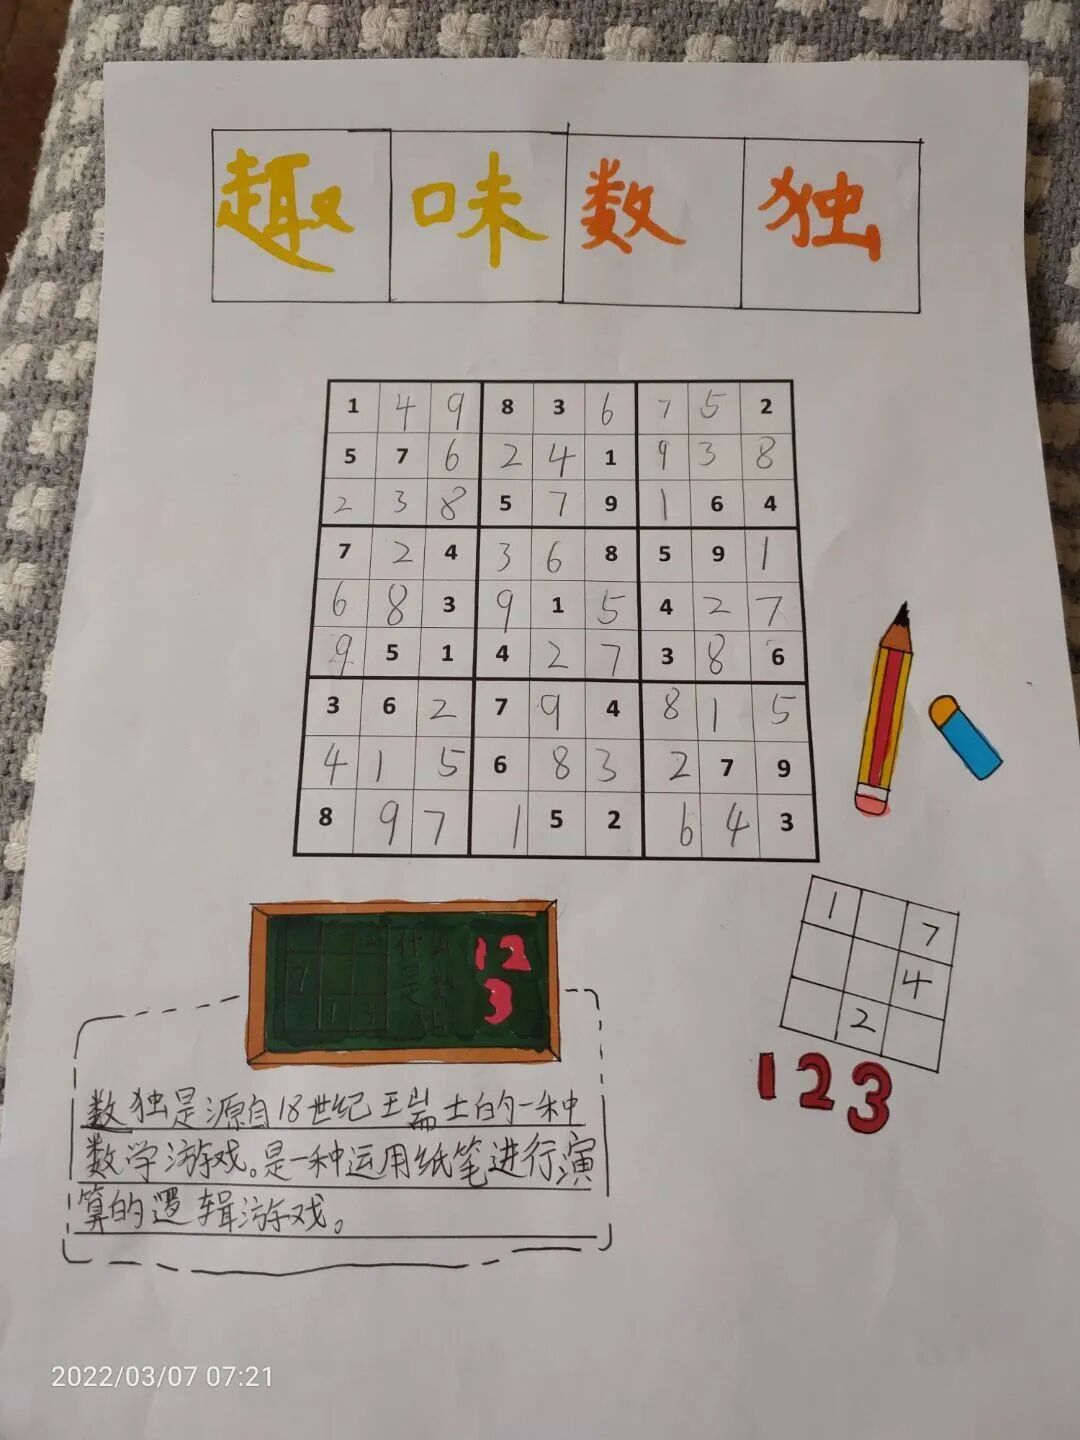 趣味数独
1 4 9 8 3 6 7 5 2
5 7 6 2 4 1 9 3 8
2 3 8 5 7 9 1 6 4
7 2 4 3 6 8 5 9 1
6 8 3 9 1 5 4 2 7
9 5 1 4 2 7 3 8 6
3 6 2 7 9 4 8 1 5
4 1 5 6 8 3 2 7 9
8 9 7 1 5 2 6 4 3
1 7
4
2
123
2 什么 12
7 是数 3
1 3 独
数独是源自18世纪王瑞士的一种
数学游戏。是一种运用纸笔进行演
算的逻辑游戏。
2022/03/07 07:21